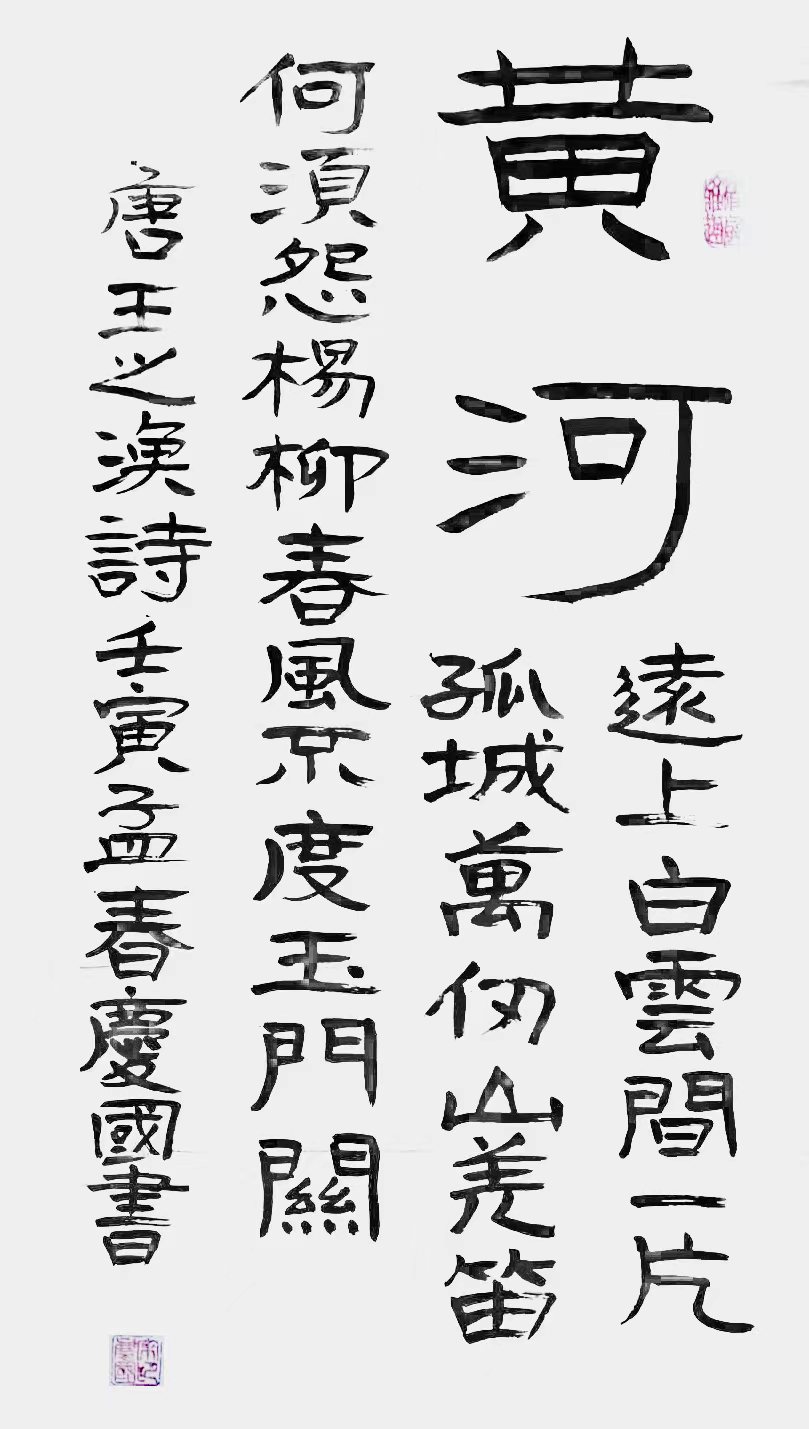 黄河
遠上白雲間一片
孤城萬仞山羌笛
何須怨楊柳春風不度玉門關
唐王之渙詩壬寅孟春慶國書